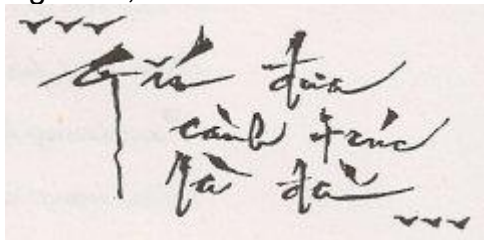 Gió đưa
cành trúc
là đà